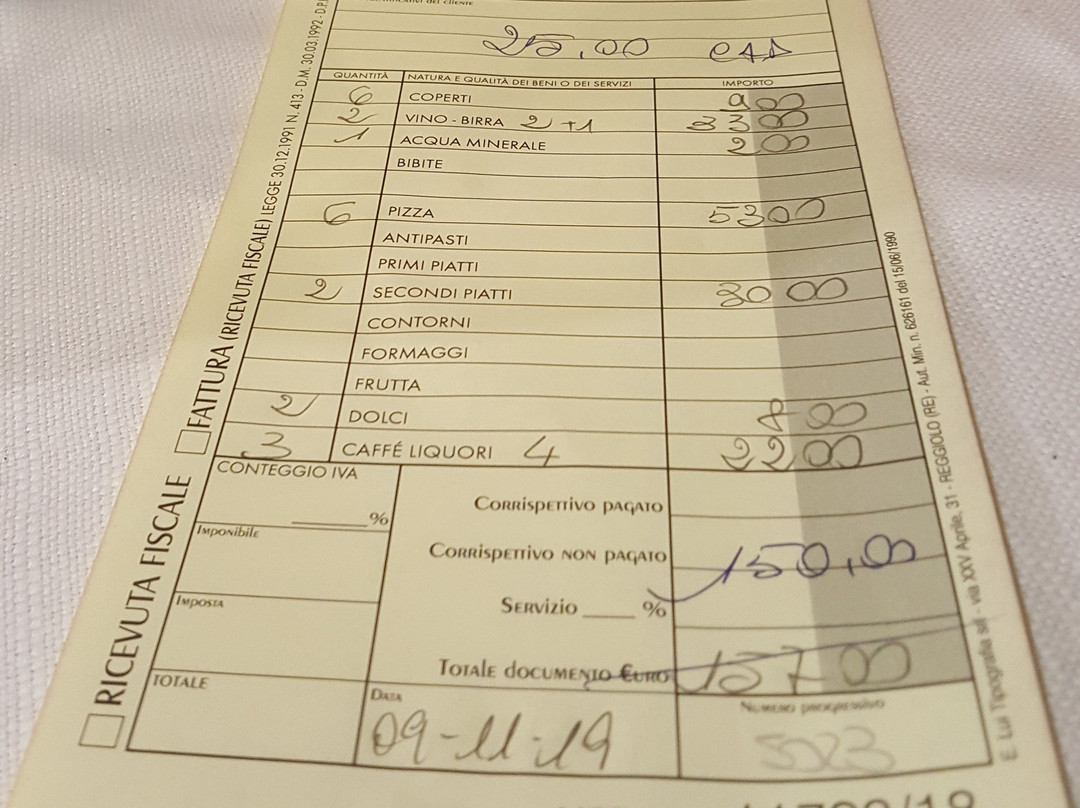 25,00 CAD
QUANTITÀ NATURA E QUALITÀ DEI BENI O DEI SERVIZI IMPORTO
6 COPERTI 9 00
2 VINO - BIRRA 2+1 33 00
1 ACQUA MINERALE 2 00
BIBITE
6 PIZZA 53 00
ANTIPASTI
PRIMI PIATTI
2 SECONDI PIATTI 30 00
CONTORNI
FORMAGGI
FRUTTA
2 DOLCI 8 00
3 CAFFÉ LIQUORI 4 22 00
CONTEGGIO IVA
%
IMPONIBILE
IMPOSTA
TOTALE
CORRISPETTIVO PAGATO
CORRISPETTIVO NON PAGATO 150,00
SERVIZIO ____ %
TOTALE DOCUMENTO EURO 157 00
DATA
09-11-19
NUMERO PROGRESSIVO
5023
RICEVUTA FISCALE
FATTURA (RICEVUTA FISCALE) LEGGE 30.12.1991 N. 413 - D.M. 30.03.1992 -
E. Lui Tipografia srl - via XXV Aprile, 31 - REGGIOLO (RE) - Aut. Min. n. 626161 del 15/06/1990